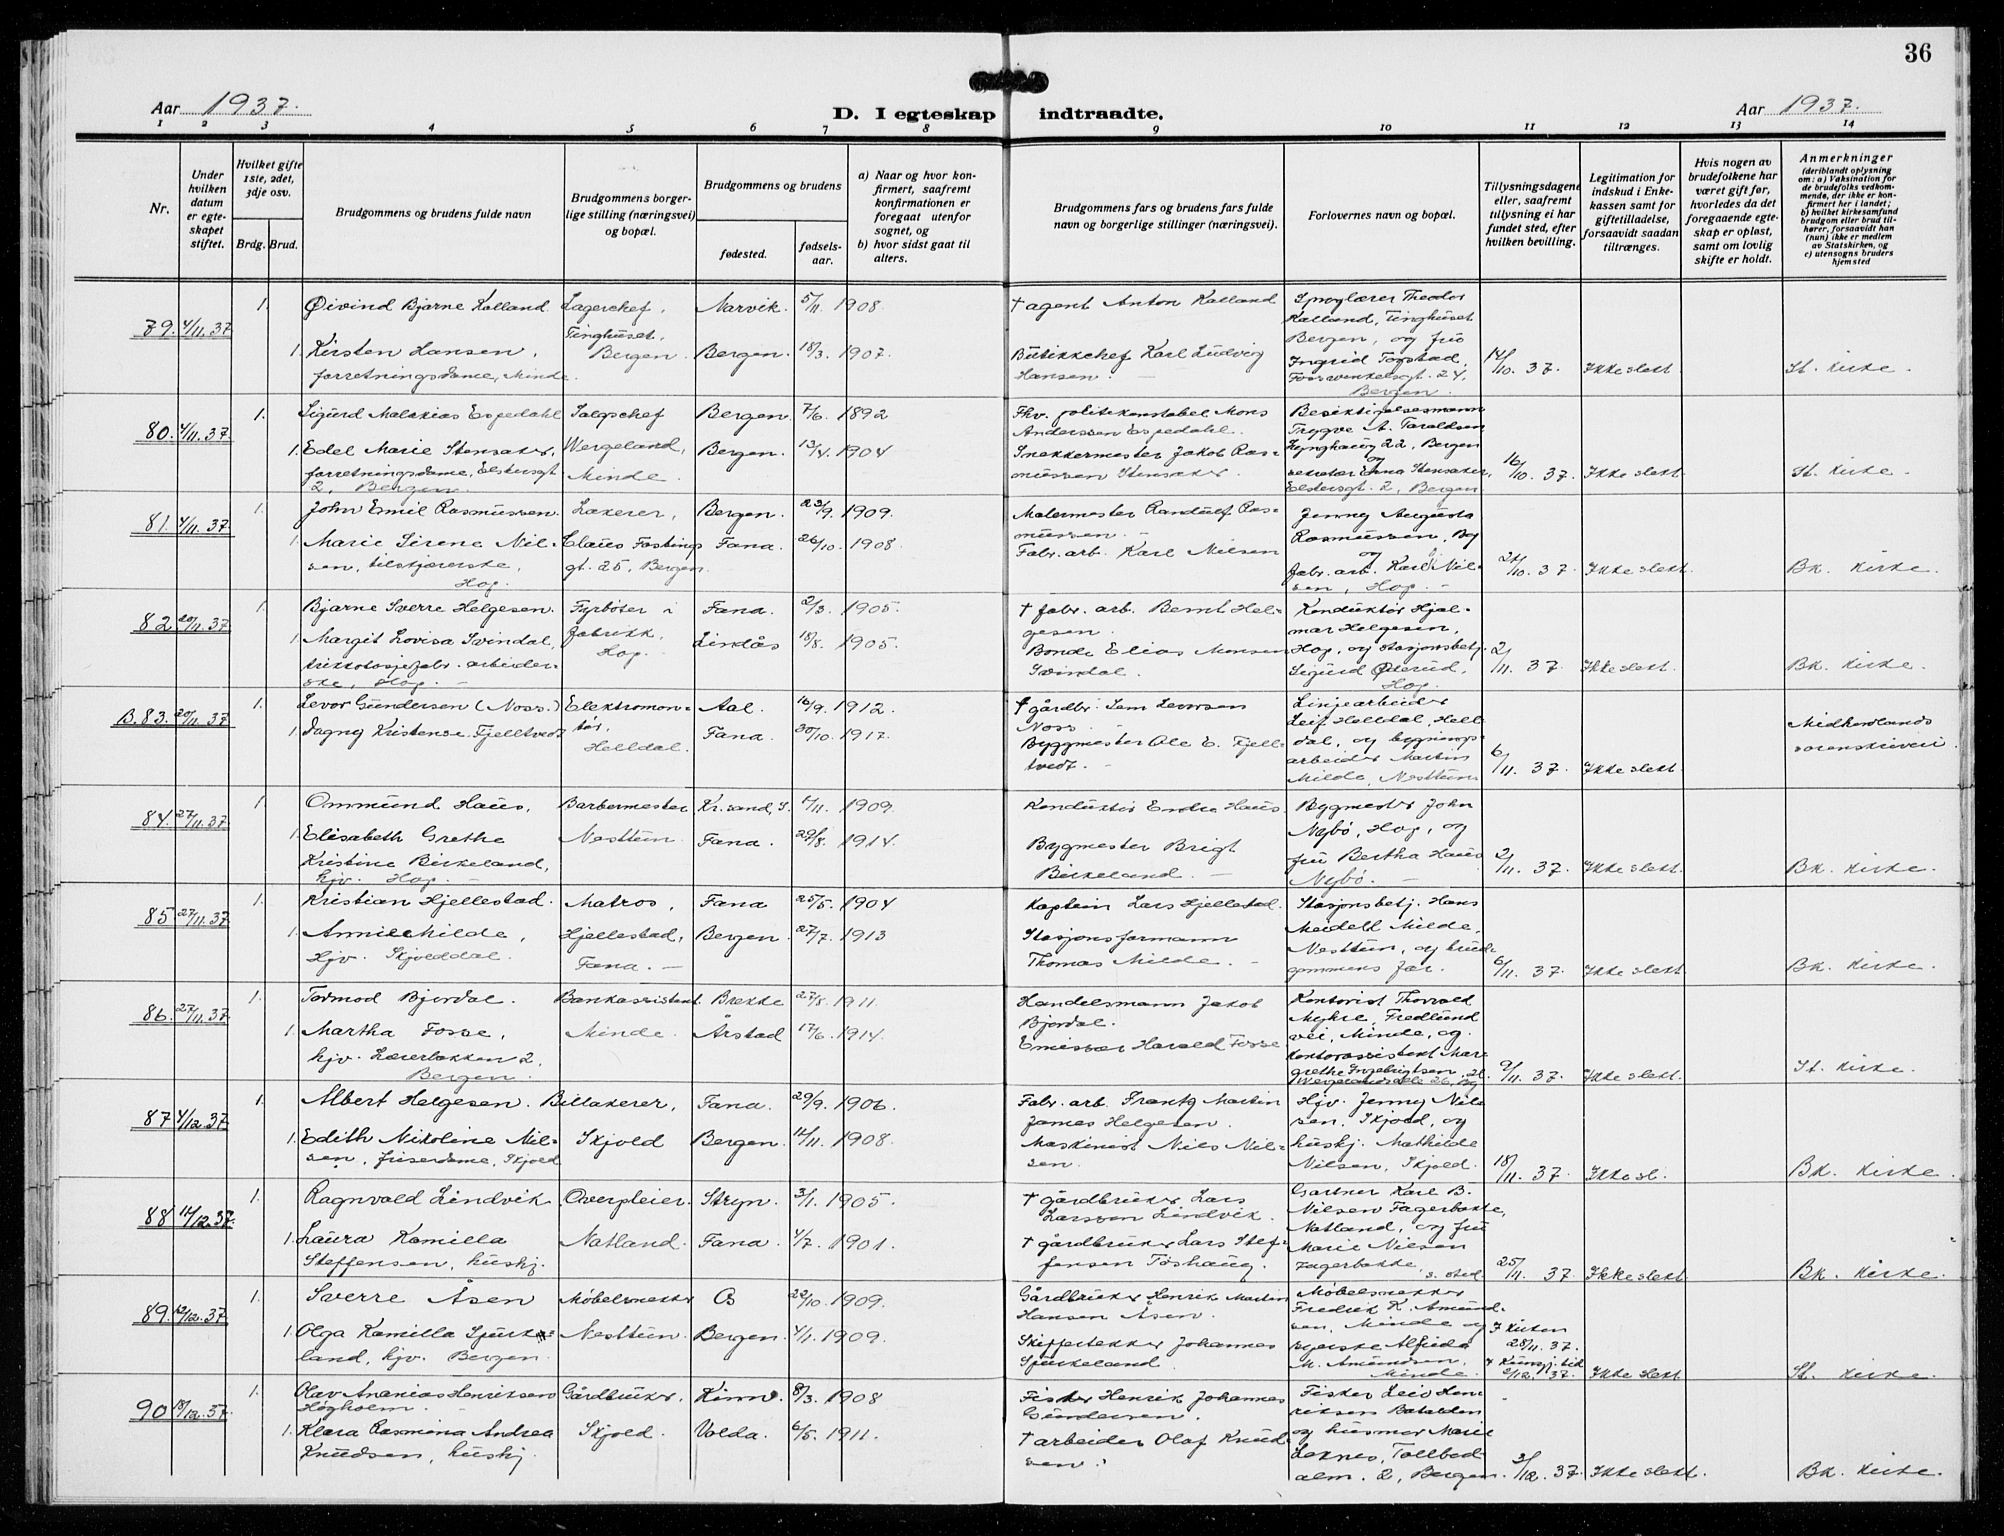 36
Aar 1937.
D. I egteskap indtraadte.
Aar 1937.
1 2 3 4 5 6 7 8 9 10 11 12 13 14
Nr.
Under hvilken datum er egteskapet stiftet.
Hvilket gifte 1ste, 2det, 3dje osv.
Brdg. Brud.
Brudgommens og brudens fulde navn
Brudgommens borgerlige stilling (næringsvei) og bopæl.
Brudgommens og brudens
fødested.
fødselsaar.
a) Naar og hvor konfirmert, saafremt konfirmationen er foregaat utenfor sognet, og
b) hvor sidst gaat til alters.
Brudgommens fars og brudens fars fulde navn og borgerlige stillinger (næringsvei).
Forlovernes navn og bopæl.
Tillysningsdagene eller, saafremt tillysning ei har fundet sted, efter hvilken bevilling.
Legitimation for indskud i Enkekassen samt for giftetilladelse, forsaavidt saadan tiltrænges.
Hvis nogen av brudefolkene har været gift før, hvorledes da det foregaaende egteskap er opløst, samt om lovlig skifte er holdt.
Anmerkninger
(deriblandt oplysning om: a) Vaksination for de brudefolks vedkommende, der ikke er konfirmert her i landet;
b) hvilket kirkesamfund brudgom eller brud tilhører, forsaavidt han (hun) ikke er medlem av Statskirken, og
c) utensogns bruders hjemsted
79. 4/11.37 1. Øivind Bjarne Kalland Lagerchef, Narvik. 5/11 1908. † agent Anton Kalland Sproglærer Theodor
Tinghuset, Kalland, Tinghuset
1. Kirsten Hansen, Bergen. Bergen. 18/3. 1907. Butikkchef Karl Ludvig Bergen, og frü
forretningsdame, Minde. Hansen. Ingrid Togstad, 14/10. 37. Ikke slekt. St. Kirke.
Fosswinkelsgt. 24,
Bergen.
80. 4/11.37 1. Sigurd Malakias Espedahl Salgschef Bergen. 7/6. 1892 Fhv. politikonstabel Mons Besiktigelsesmann
Anderssen Espedahl. Trygve A. Taraldsen
1. Edel Marie Stensaker, Wergeland, Bergen. 13/4. 1904 Snekkermester Jakob Ras- Lynghaug 22, Bergen
forretningsdame, Elstersgt mussen Stensaker. og
2, Bergen. Minde. sekretær Erna Stensaker, 16/10. 37. Ikke slekt St. Kirke.
Elstersgt. 2, Bergen.
81. 4/11.37 1. John Emil Rasmussen. Lakerer, Bergen. 23/9. 1909. Malermester Randulf Ras- Jenny Augusta
mussen. Rasmussen, Bg
1. Marie Sirene Nil- Claus Fastings Fana. 26/10. 1908. Fabr. arb. Karl Nilsen og
sen, tilskjærerske, gt. 25, Bergen. fabr. arb. Karl Nil- 21/10. 37. Ikke slekt. Bk. Kirke.
Hop. sen, Hop.
82 20/11.37 1. Bjarne Sverre Helgesen. Fyrbøter i Fana. 2/3. 1905. † fabr. arb. Bernt Hel- Konduktør Hjal-
gesen. mar Helgesen,
1. Margit Lovisa Svindal, fabrikk, Lindås 18/8. 1905. Bonde Elias Monsen Hop, og stasjonsbetj.
trikotasjefabr. arbeider- Hop. Svindal. Sigurd Østerud, 2/11. 37. Ikke slekt. Bk. Kirke.
ske, Hop. Hop.
B. 83. 20/11.37 1. Levor Gundersen (Noss.) Elektromon- Aal. 16/9. 1912. † gårdbr. Sam Levorsen Linjearbeider
tør, Noss. Leif Helldal, Hell-
1. Dagny Kristense Fjelltvedt Helldal. Fana. 30/10. 1917. Byggmester Ole E. Fjell- dal, og bygnings- Midhordlands
tvedt. arbeider Martin 6/11. 37. Ikke slekt. sorenskriveri.
Milde, Nesttun.
84. 27/11.37 1. Ommund Haus, Barbermester Kr.sand, S. 1909. Konduktør Endre Haus Bygmester John
1. Elisabeth Grethe Nesttun. Fana. 29/8. 1914. Bygmester Brigt Nybø, Hop, og
Kristine Birkeland, Birkeland. frü Bertha Haus 2/11. 37. Ikke slekt. Bk. Kirke.
hjv. Hop. Nybø.
85 27/11.37 1. Kristian Hjellestad. Matros, Fana 25/5. 1904 Kaptein Lars Hjellestad. Stasjonsbetj. Hans
1. Annie Milde, Hjellestad, Bergen. 27/7. 1913 Stasjonsformann Meidell Milde,
Hjv. Skjolddal. Fana. Thomas Milde. Nesttun, og brud-
gommens far. 6/11. 37. Ikke slekt Bk. Kirke.
86. 27/11.37 1. Tormod Bjordal. Bankassistent Brekke 27/8. 1911. Handelsmann Jakob Kontorist Thorvald
Bjordal. Myhre, Fredlund
1. Martha Fosse, Minde. Årstad 17/6. 1914. Emissær Harald Fosse vei, Minde, og
hjv. Lærerbakken 2, kontorassistent Mar
Bergen. grethe Ingebrigtsen, 9/11. 37. Ikke slekt. St. Kirke.
87 4/12.37 1. Albert Helgesen. Billakerer, Fana. 29/9. 1906. Fabr. arb. Frantz Martin Hjv. Jenny Nil-
James Helgesen. sen, Skjold, og
1. Edith Nikoline Nil- Skjold Bergen. 14/11. 1908. Maskinist Nils Nil- huskj. Mathilde
sen, friserdame, Skjold sen. Nilsen, Skjold. 18/11. 37. Ikke sl. Bk. Kirke.
88 11/12.37. 1. Ragnvald Lindvik Overpleier. Stryn. 3/1. 1905. † gårdbruker Lars Gartner Karl B.
Larssen Lindvik. Nilsen Fagerbakke,
1. Laura Kamilla Natland. Fana. 4/7. 1901. † gårdbruker Lars Stef- Natland, og frü
Steffensen, huskj. fensen Toshaug. Marie Nilsen
Fagerbakke, s. sted 25/11. 37. Ikke slekt Bk. Kirke.
89. 12/12.37. 1. Sverre Åsen Møbelsnekker Os 22/10. 1909. Gårdbruker Henrik Martin Møbelsnekker
Hansen Åsen. Fredrik K. Amund-
1. Olga Kamilla Spurke- Nesttun. Bergen. 4/1. 1909. Skiffertekker Johannes sen, Minde og I kirken
land, hjv. Bergen. Spurkeland. syerske Alfrida 28/11. 37.
M. Amundsen, I Kunngj. tid
Minde. 2/12. 37. Ikke slekt St. Kirke.
90 18/12.37 1. Olav Ananias Henriksen Gårdbruker, Kinn. 8/3. 1908 Fisker Henrik Johannes Fisker Leiv Hen-
Høgholm. Gundersen. riksen Batalden
1. Klara Rasmina Andrea Skjold. Volda. 6/5. 1911. † arbeider Olaf Knud- og husmor Marie
Knudsen, huskj. sen. Loknes, Tollbod-
alm. 2, Bergen. 3/12. 37. Ikke slekt. Bk. Kirke.